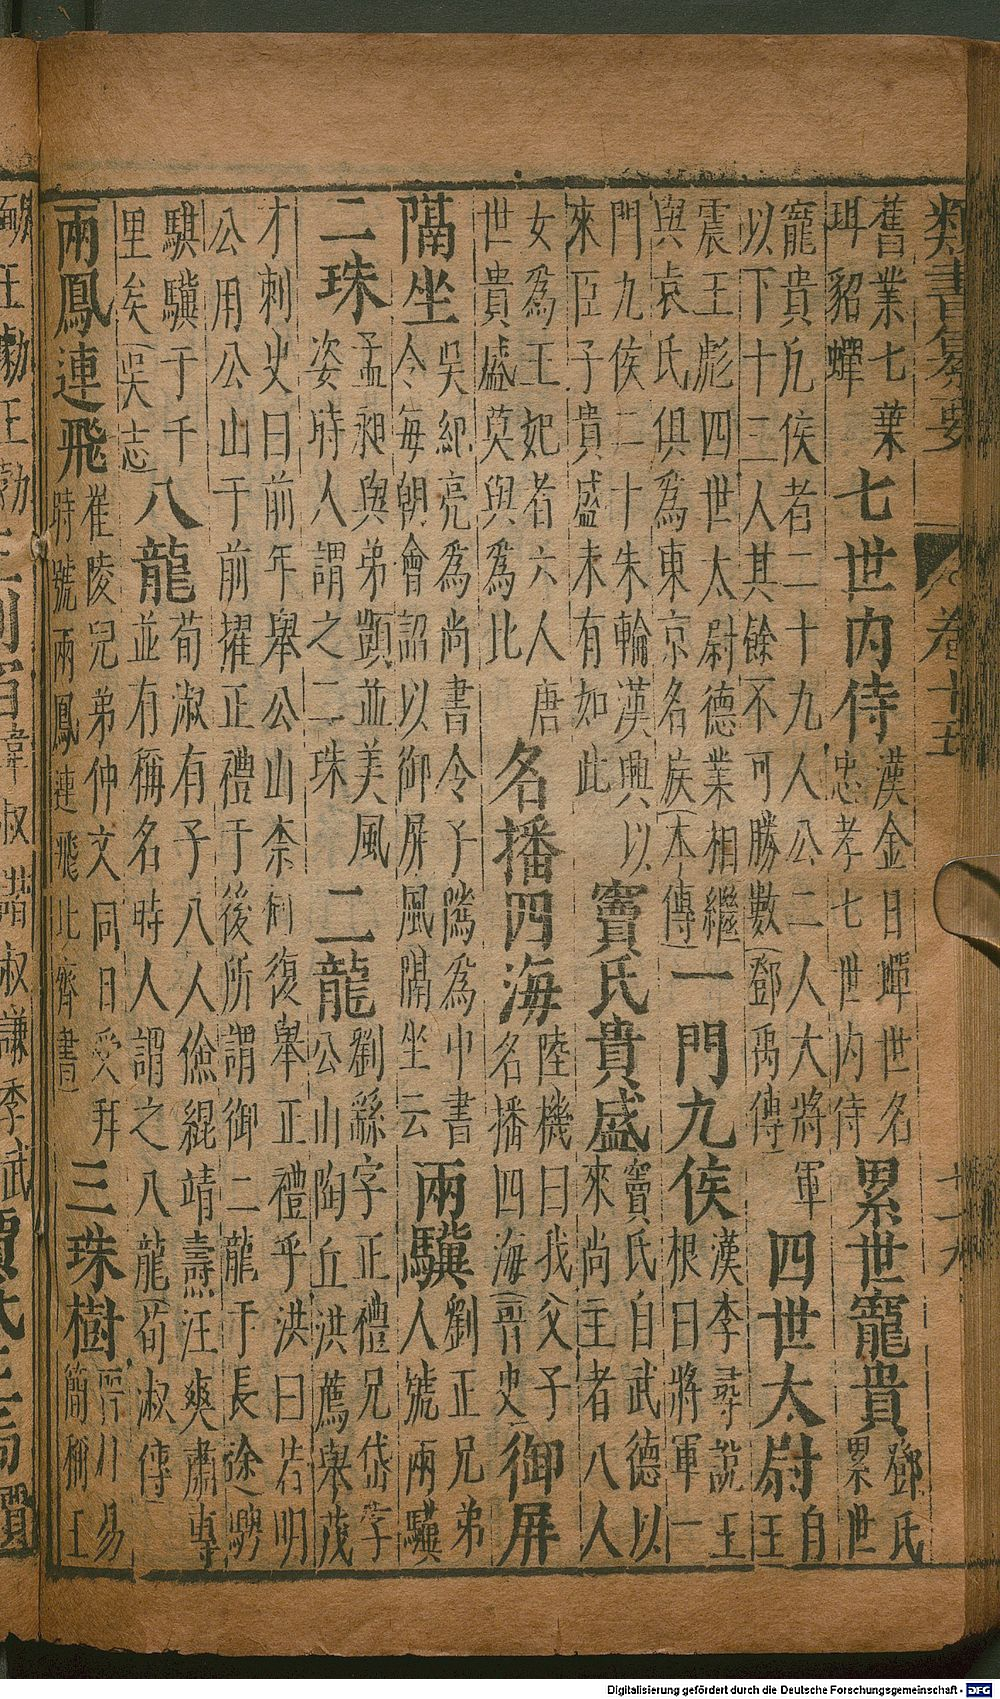 類書纂要 卷十五
舊業七葉
珥貂蟬
七世內侍
漢金日蟬世名
忠孝七世內侍
累世寵貴
鄧氏
累世
寵貴凡侯者二十九人公二人大將軍
以下十三人其餘不可勝數(鄧禹傳)
四世太尉
自
王
震王彪四世太尉德業相繼
與袁氏俱為東京名族(本傳)
一門九侯
漢李尋說王
根曰將軍一
門九侯二十朱輪漢興以
來臣子貴盛未有如此
竇氏貴盛
竇氏自武德以
來尚主者八人
女為王妃者六人唐
世貴盛莫與為比
名播四海
陸機曰我父子
名播四海(晉史)
御屏
隔坐
吳紀亮為尚書令子隲為中書
令每朝會詔以御屏風隔坐云
兩驥
劉正兄弟
人號兩驥
二珠
孟昶與弟顗並美風
姿時人謂之二珠
二龍
劉繇字正禮兄岱字
公山陶丘洪薦舉茂
才刺史曰前年舉公山柰何復舉正禮乎洪曰若明
公用公山于前擢正禮于後所謂御二龍于長途騁
騏驥于千
里矣(吳志)
八龍
荀淑有子八人儉緄靖燾汪爽肅專
並有稱名時人謂之八龍(荀淑傳)
兩鳳連飛
崔陵兒弟仲文同日受拜
時號兩鳳連飛(北齊書)
三珠樹
晉川易
簡稱王
Digitalisierung gefördert durch die Deutsche Forschungsgemeinschaft - DFG